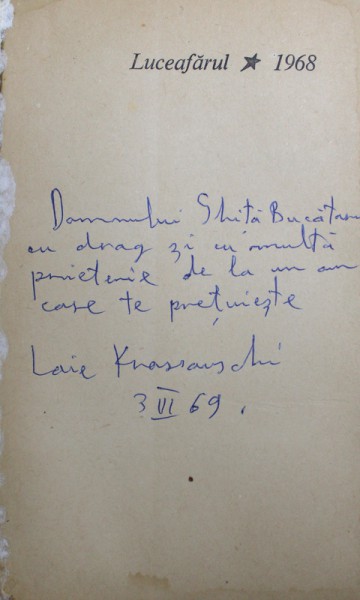 Luceafărul ★ 1968
Domnului Ghiță Bucătaru
cu drag și cu multă
prietenie de la un om
care te prețuiește
Laie
3 VI 69.